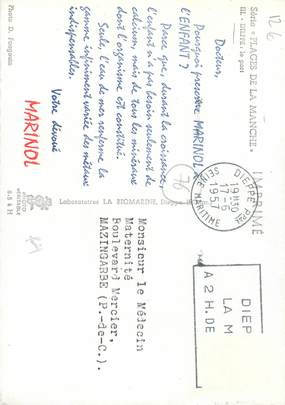 Série « PLAGES DE LA MANCHE »
III. - DIEPPE, le port
Docteur,
Pourquoi prescrire MARINOL à
l'ENFANT ?
Parce que, durant la croissance,
l'enfant n'a pas besoin seulement de
calcium, mais de tous les minéraux
dont l'organisme est constitué.
Seule, l'eau de mer renferme la
gamme infiniment variée des métaux
indispensables.
Votre dévoué
MARINOL
Photo D. Fougouin
Laboratoires LA BIOMARINE, Dieppe
76
12-6
IMPRIMÉ
DIEPPE PPAL
19H30
11-6
1957
SEINE MARITIME
DIEP
LA M
A 2 H. DE
Monsieur le Médecin
Maternité
Boulevard Mercier,
MAZINGARBE (P.-de-C.).